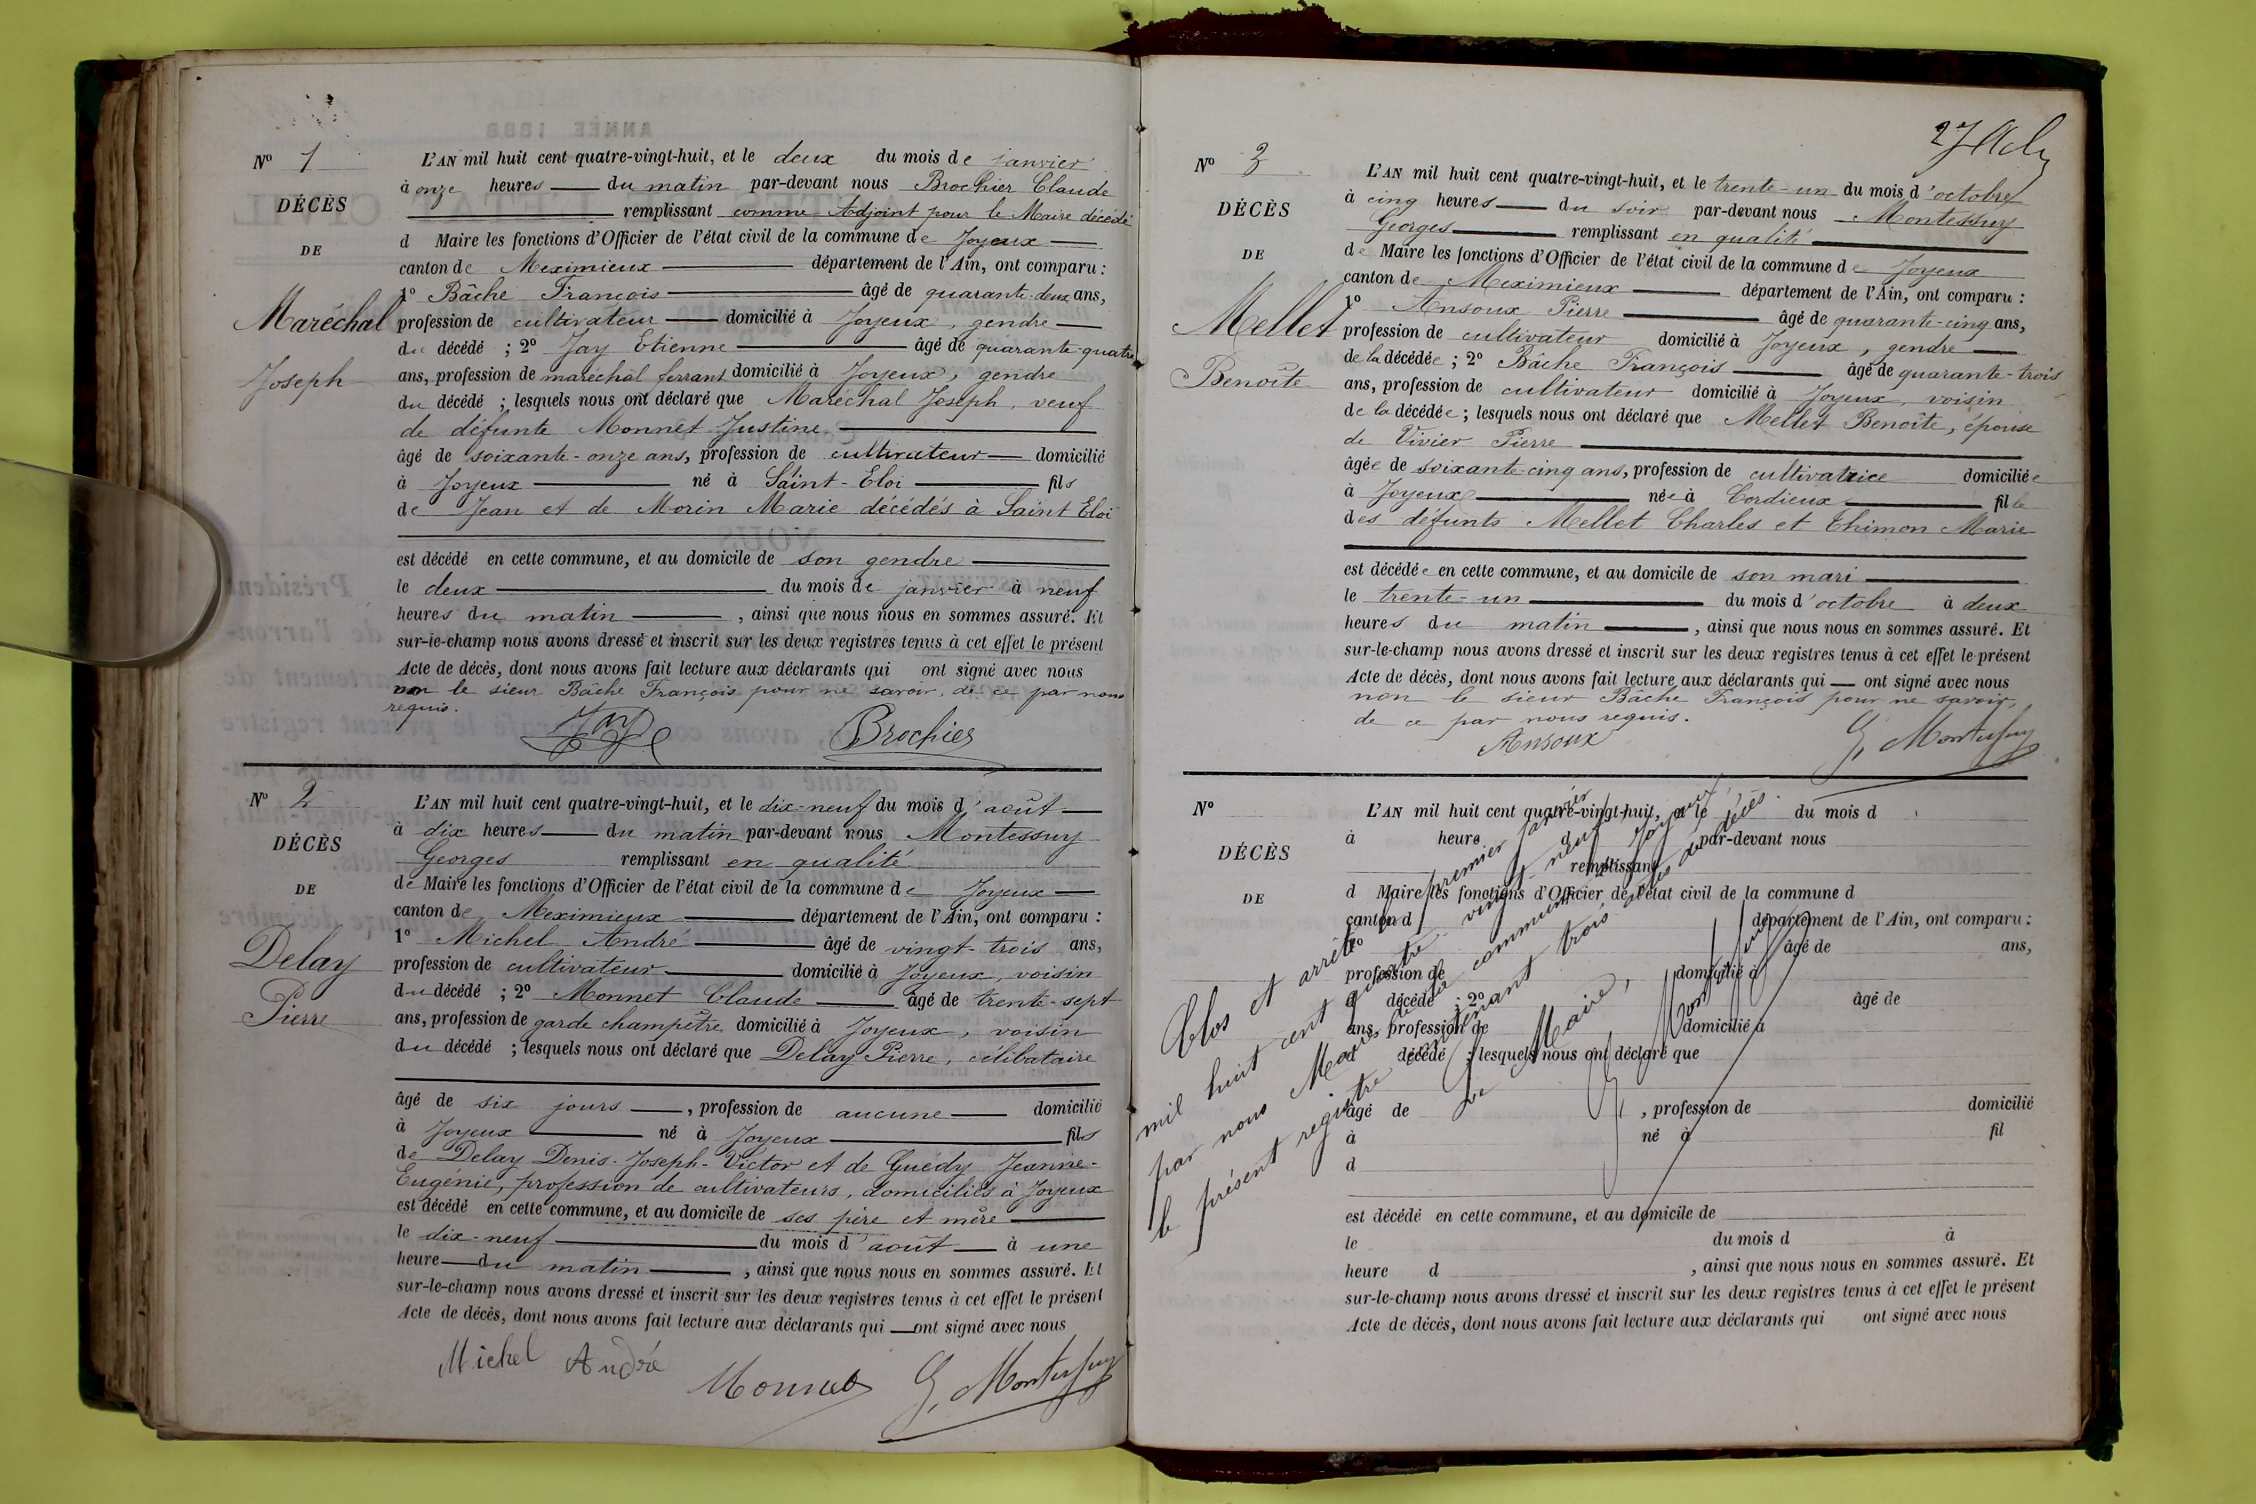 Nº 1
DÉCÈS
DE
Maréchal
Joseph
L'AN mil huit cent quatre-vingt-huit, et le deux du mois de janvier
à onze heures du matin par-devant nous Brochier Claude
remplissant comme Adjoint pour le Maire décédé
d Maire les fonctions d'Officier de l'état civil de la commune de Joyeux
canton de Meximieux département de l'Ain, ont comparu :
1º Bâche François âgé de quarante-deux ans,
profession de cultivateur domicilié à Joyeux, gendre
du décédé ; 2º Jay Etienne âgé de quarante-quatre
ans, profession de maréchal ferrant domicilié à Joyeux, gendre
du décédé ; lesquels nous ont déclaré que Maréchal Joseph, veuf
de défunte Monnet Justine
âgé de soixante-onze ans, profession de cultivateur domicilié
à Joyeux né à Saint-Eloi fils
de Jean et de Morin Marie décédés à Saint Eloi
est décédé en cette commune, et au domicile de son gendre
le deux du mois de janvier à neuf
heures du matin, ainsi que nous nous en sommes assuré. Et
sur-le-champ nous avons dressé et inscrit sur les deux registres tenus à cet effet le présent
Acte de décès, dont nous avons fait lecture aux déclarants qui ont signé avec nous
non le sieur Bâche François pour ne savoir, de ce par nous
requis.
Jay Brochier
Nº 2
DÉCÈS
DE
Delay
Pierre
L'AN mil huit cent quatre-vingt-huit, et le dix-neuf du mois d'août
à dix heures du matin par-devant nous Montessuy
Georges remplissant en qualité
de Maire les fonctions d'Officier de l'état civil de la commune de Joyeux
canton de Meximieux département de l'Ain, ont comparu :
1º Michel André âgé de vingt-trois ans,
profession de cultivateur domicilié à Joyeux, voisin
du décédé ; 2º Monnet Claude âgé de trente-sept
ans, profession de garde champêtre domicilié à Joyeux, voisin
du décédé ; lesquels nous ont déclaré que Delay Pierre, célibataire
âgé de six jours, profession de aucune domicilié
à Joyeux né à Joyeux fils
de Delay Denis-Joseph-Victor et de Guédy Jeanne-
Eugénie, profession de cultivateurs, domiciliés à Joyeux
est décédé en cette commune, et au domicile de ses père et mère
le dix-neuf du mois d'août à une
heure du matin, ainsi que nous nous en sommes assuré. Et
sur-le-champ nous avons dressé et inscrit sur les deux registres tenus à cet effet le présent
Acte de décès, dont nous avons fait lecture aux déclarants qui ont signé avec nous
Michel André Monnet G. Montessuy
27
Nº 3
DÉCÈS
DE
Mellet
Benoîte
L'AN mil huit cent quatre-vingt-huit, et le trente-un du mois d'octobre
à cinq heures du soir par-devant nous Montessuy
Georges remplissant en qualité
de Maire les fonctions d'Officier de l'état civil de la commune de Joyeux
canton de Meximieux département de l'Ain, ont comparu :
1º Ansoux Pierre âgé de quarante-cinq ans,
profession de cultivateur domicilié à Joyeux, gendre
de la décédée ; 2º Bâche François âgé de quarante-trois
ans, profession de cultivateur domicilié à Joyeux, voisin
de la décédée ; lesquels nous ont déclaré que Mellet Benoîte, épouse
de Vivier Pierre
âgée de soixante cinq ans, profession de cultivatrice domiciliée
à Joyeux née à Cordieux fille
des défunts Mellet Charles et Thimon Marie
est décédée en cette commune, et au domicile de son mari
le trente-un du mois d'octobre à deux
heures du matin, ainsi que nous nous en sommes assuré. Et
sur-le-champ nous avons dressé et inscrit sur les deux registres tenus à cet effet le présent
Acte de décès, dont nous avons fait lecture aux déclarants qui ont signé avec nous
non le sieur Bâche François pour ne savoir,
de ce par nous requis.
Ansoux G. Montessuy
Nº
DÉCÈS
DE
L'AN mil huit cent quatre-vingt-huit, et le du mois d
à heure d par-devant nous
remplissant
d Maire les fonctions d'Officier de l'état civil de la commune d
canton d département de l'Ain, ont comparu :
1º âgé de ans,
profession de domicilié à
d décédé ; 2º âgé de
ans, profession de domicilié à
d décédé ; lesquels nous ont déclaré que
âgé de , profession de domicilié
à né à fil
d
est décédé en cette commune, et au domicile de
le du mois d à
heure d , ainsi que nous nous en sommes assuré. Et
sur-le-champ nous avons dressé et inscrit sur les deux registres tenus à cet effet le présent
Acte de décès, dont nous avons fait lecture aux déclarants qui ont signé avec nous
Clos et arrêté le premier janvier
mil huit cent quatre vingt-neuf
par nous Maire de la commune de Joyeux
le présent registre contenant trois actes de décès.
Le Maire,
G. Montessuy